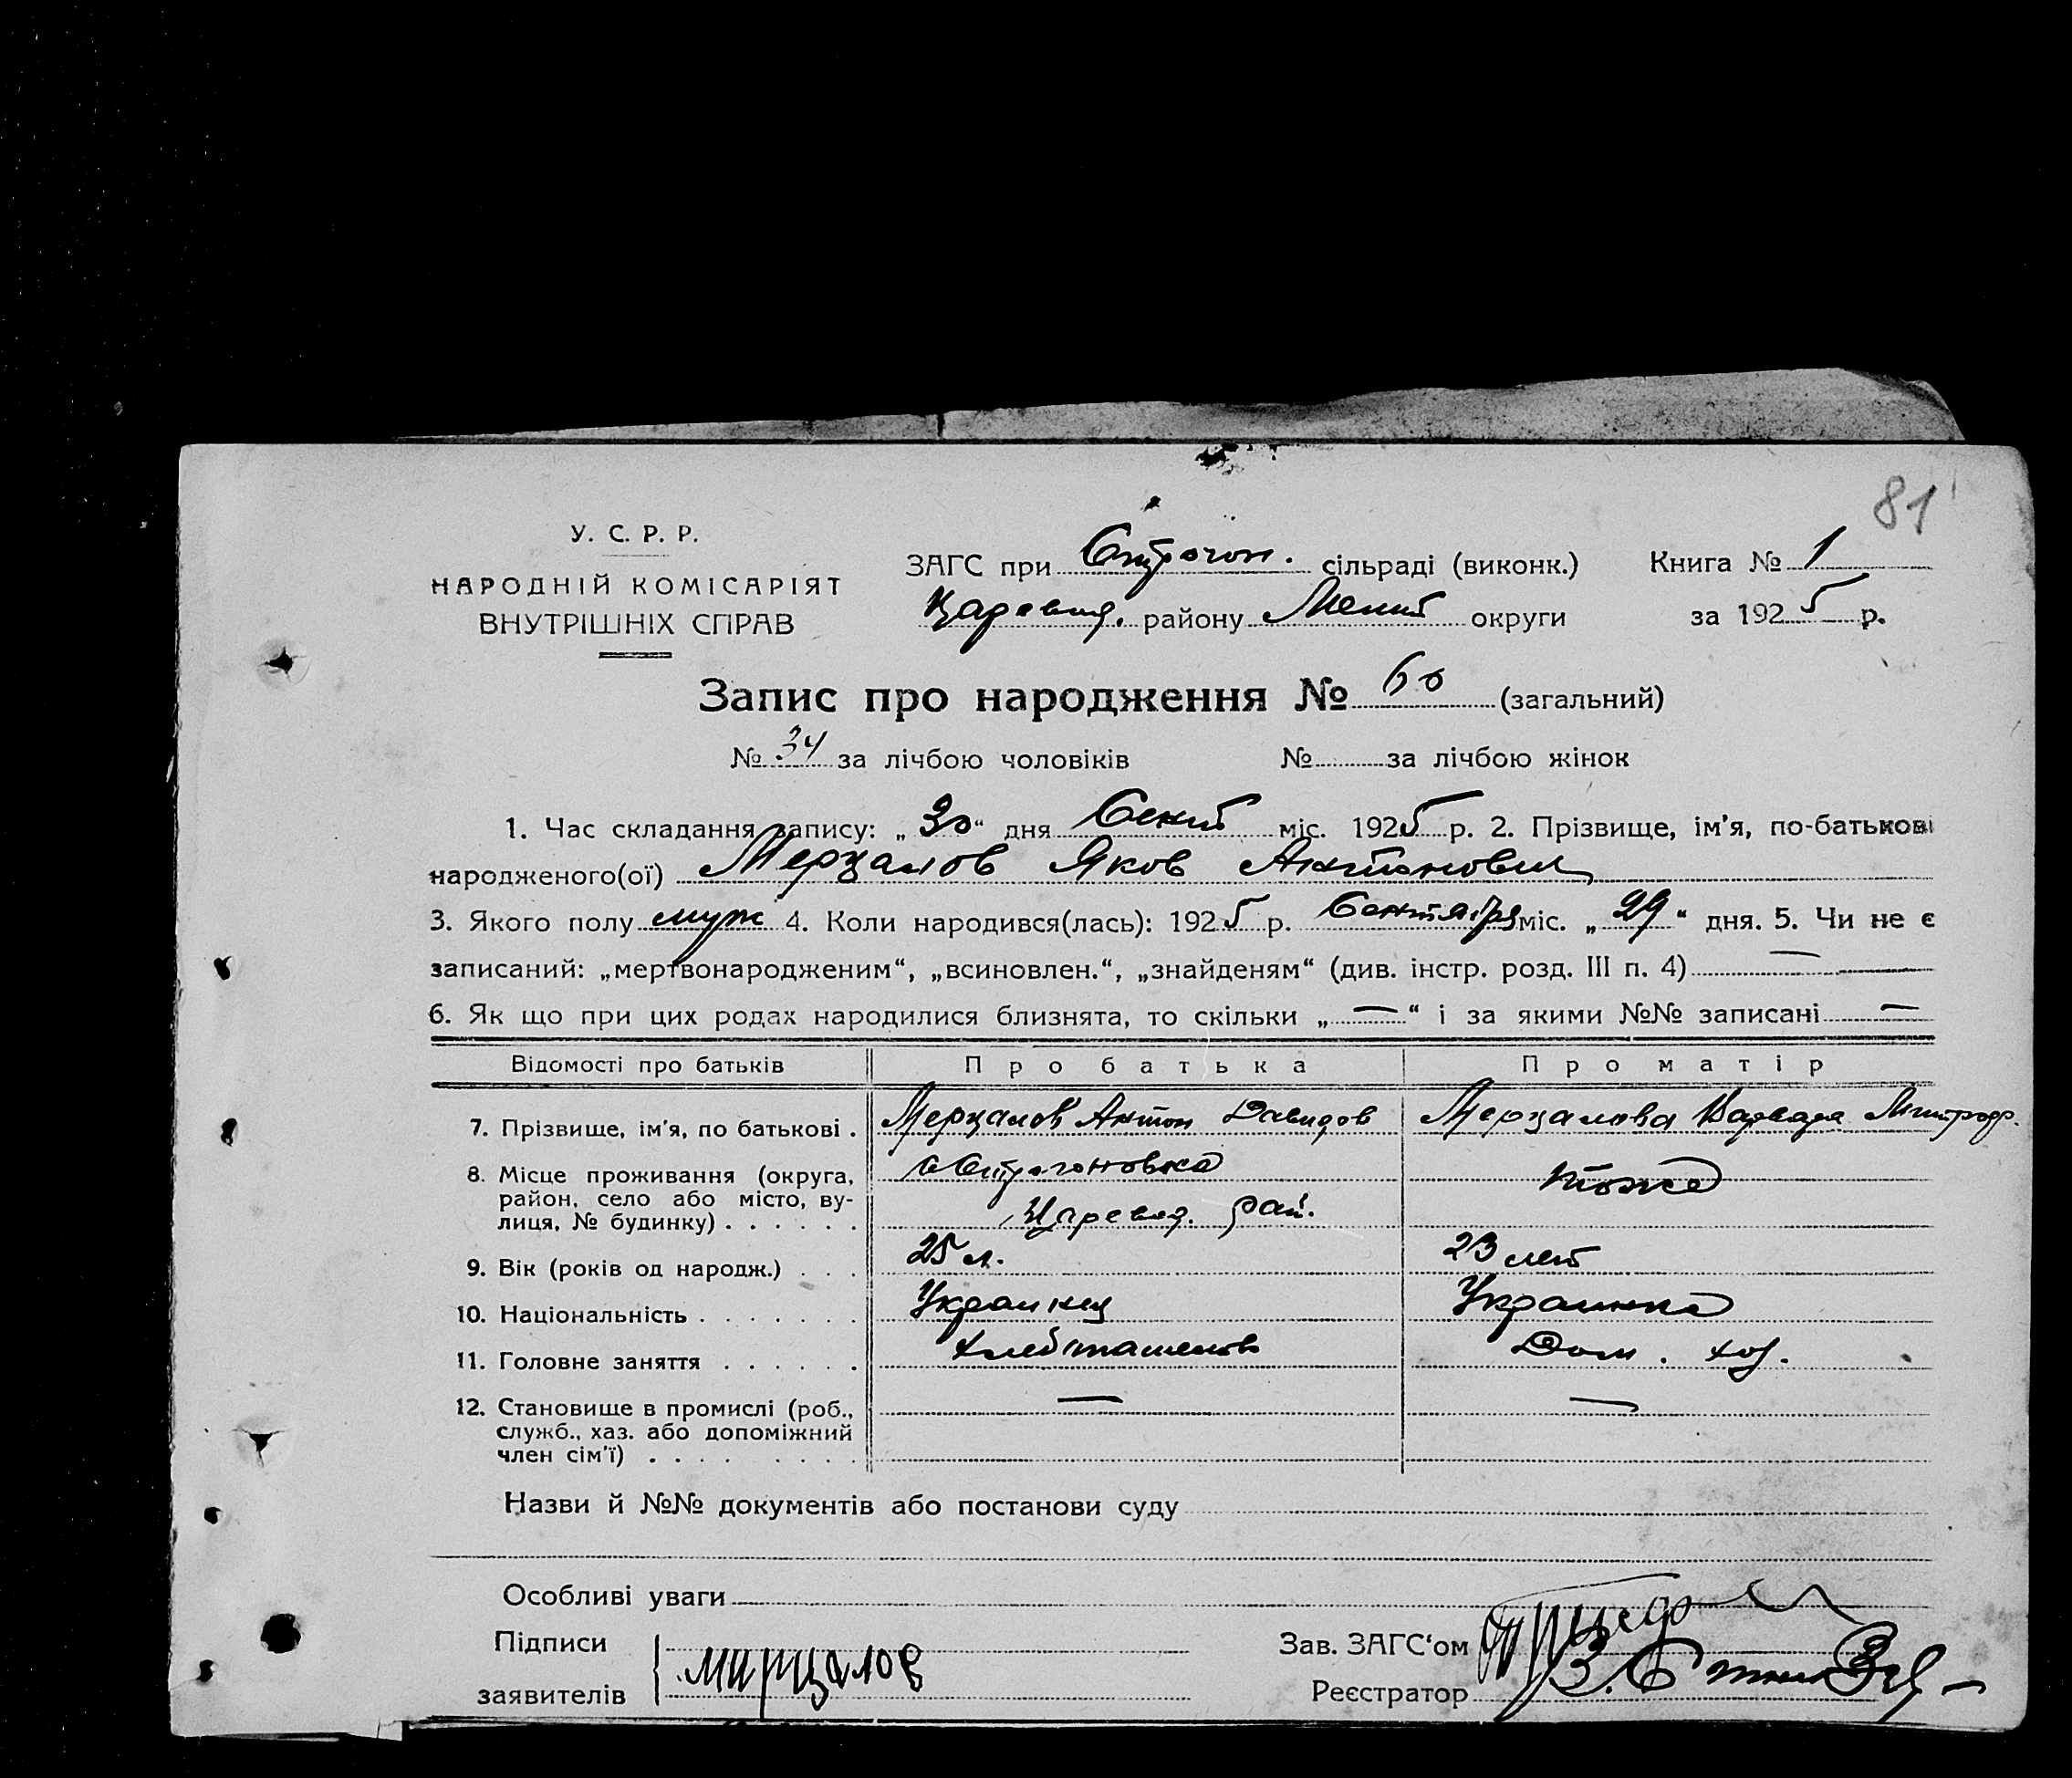 81
У. С. Р. Р.
НАРОДНІЙ КОМІСАРІЯТ
ВНУТРІШНІХ СПРАВ
ЗАГС при Строгон. сільраді (виконк.) Книга № 1
Царевид. району Мелит округи за 1925 р.
Запис про народження № 60 (загальний)
№ 34 за лічбою чоловіків № за лічбою жінок
1. Час складання запису: „30“ дня Сент міс. 1925 р. 2. Прізвище, ім'я, по-батькові
народженого(ої) Мерцалов Яков Антонович
3. Якого полу муж 4. Коли народився(лась): 1925 р. Сентября міс. „29“ дня. 5. Чи не є
записаний: „мертвонародженим“, „всиновлен.“, „знайденям“ (див. інстр. розд. III п. 4) —
6. Як що при цих родах народилися близнята, то скільки „—“ і за якими №№ записані —
Відомості про батьків Про батька Про матір
7. Прізвище, ім'я, по батькові . Мерцалов Антон Давидов Мерцалова Варвара
8. Місце проживання (округа, район, село або місто, вулиця, № будинку) . . . . . . с Строгоновка Царевид. рай. тоже
9. Вік (років од народж.) . . . 25 л. 23 лет
10. Національність . . . . . . . Украинец Украинка
11. Головне заняття . . . . . . Хлебопашество Дом. хоз.
12. Становище в промислі (роб., служб., хаз. або допоміжний член сім'ї) . . . . . . . . — —
Назви й №№ документів або постанови суду
Особливі уваги
Підписи заявителів мирцалов
Зав. ЗАГС'ом
Реєстратор